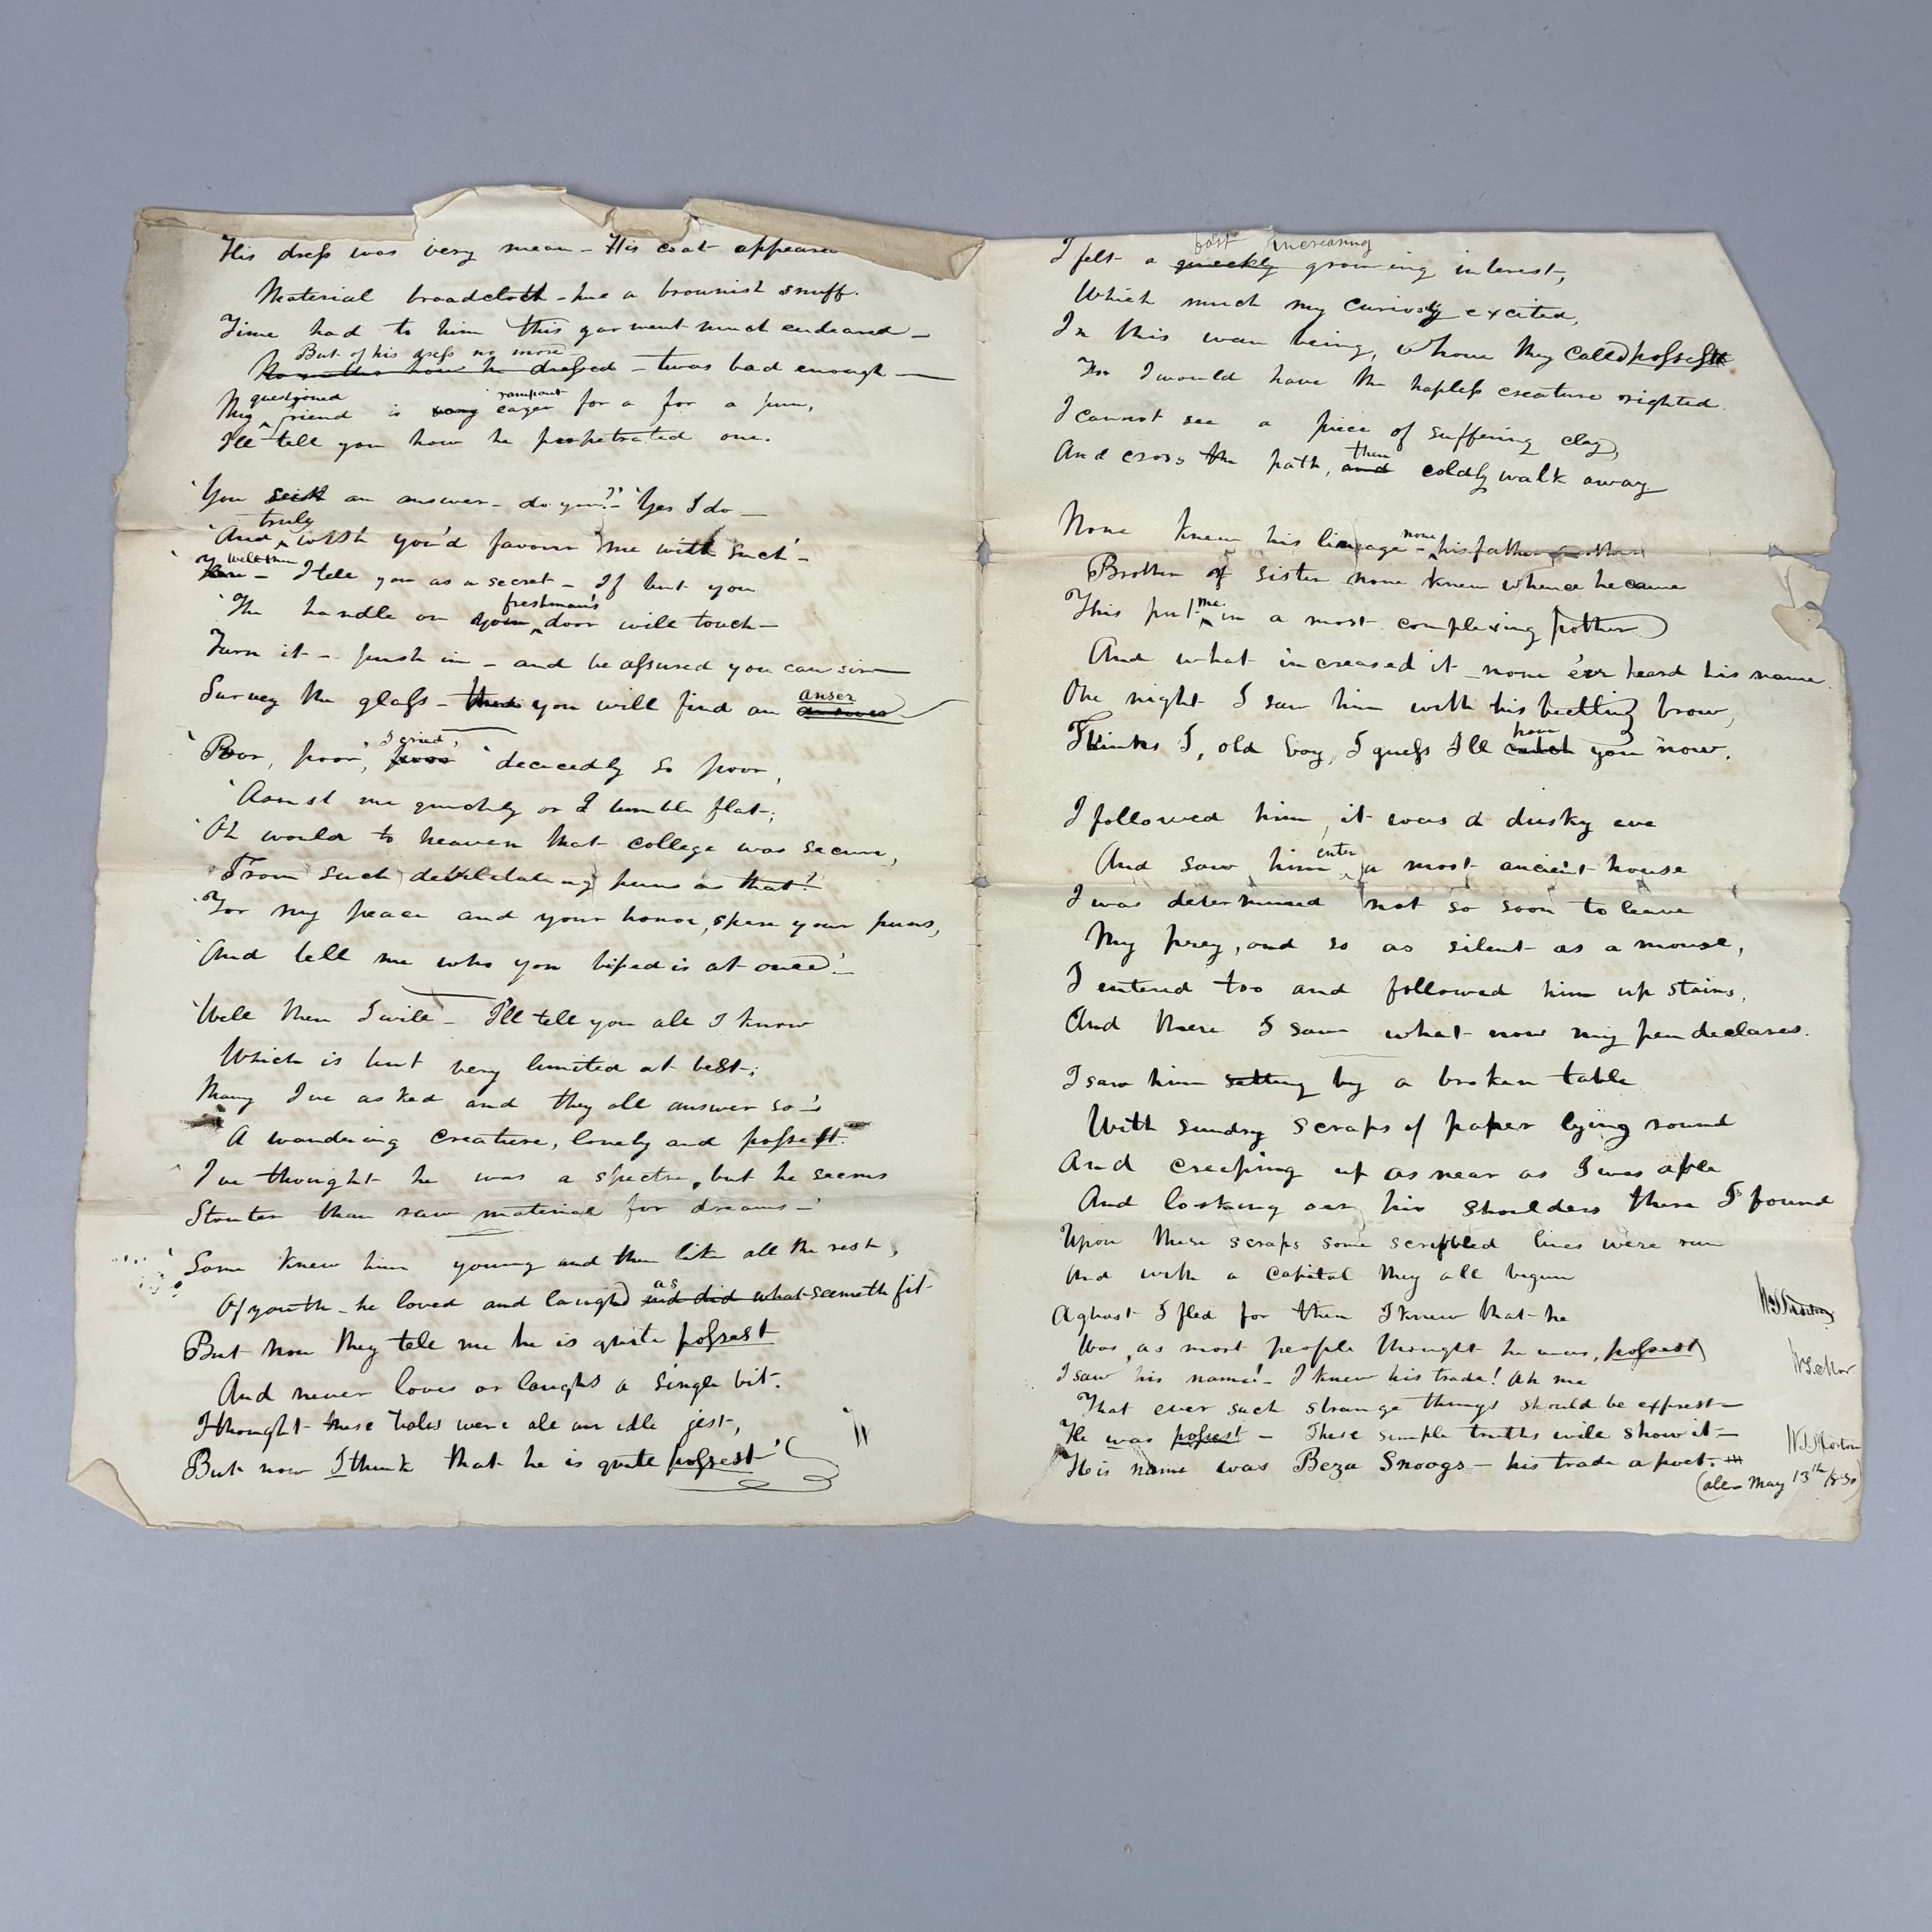 His dress was very mean - His coat appeared
Material broadcloth - hue a brownish snuff.
Time had to him this garment much endeared -
But of his dress no more
No matter how he dressed - twas bad enough -
questioned rampant
My friend is very eager for a for a pun,
I'll tell you how he perpetrated one.
'You seek an answer - do you?' - 'Yes I do -
truly
'And wish you'd favour me with such' -
well then
'I tell you as a secret - If but you
freshman's
'The handle on your door will touch -
Turn it - push in - and be assured you can sir -
anser
Survey the glass - then you will find an answer -
I cried,
'Poor, poor', poor 'decidedly so poor,
'Assist me quickly or I tumble flat;
'Oh would to heaven that college was secure,
'From such debilitating puns as that!
'For my peace and your honor, spare your puns,
'And tell me who yon biped is at once'! -
'Well then I will - I'll tell you all I know
Which is but very limited at best;
Many I've asked and they all answer so -'s
'A wandering creature, lonely and possest.'
I've thought he was a spectre, but he seems
Stouter than raw material for dreams -'
'Some knew him young and then like all the rest,
as
Of youth - he loved and laughd and did what seemeth fit -
But now they tell me he is quite possest
And never loves or laughs a single bit.
I thought these tales were all an idle jest,
But now I think that he is quite possest'
fast increasing
I felt a quickly growing interest,
Which much my curiosity excited,
In this wan being, whom they called possest
For I would have the hapless creature righted.
I cannot see a piece of suffering clay,
then
And cross the path, and coldly walk away
none
None knew his lineage - his father mother
Brother or sister none knew whence he came
me
This put in a most complexing pother
And what increased it - none e'er heard his name.
One night I saw him with his beetling brow,
have
Thinks I, old boy, I guess I'll catch you now.
I followed him, it was a dusky eve
enter
And saw him a most ancient house
I was determined not so soon to leave
My prey, and so as silent as a mouse,
I entered too and followed him up stairs,
And there I saw what now my pen declares.
I saw him setting by a broken table
With sundry scraps of paper lying round
And creeping up as near as I was able
And looking oer his shoulders there I found
Upon these scraps some scribbled lines were run
And with a capital they all begun
Aghast I fled for then I knew that he
Was, as most people thought he was, possest
I saw his name! - I knew his trade! Ah me
That ever such strange things should be exprest -
He was possest - These simple truths will show it -
His name was Beza Snoogs - his trade a poet.
(ale - May 13th 1830)